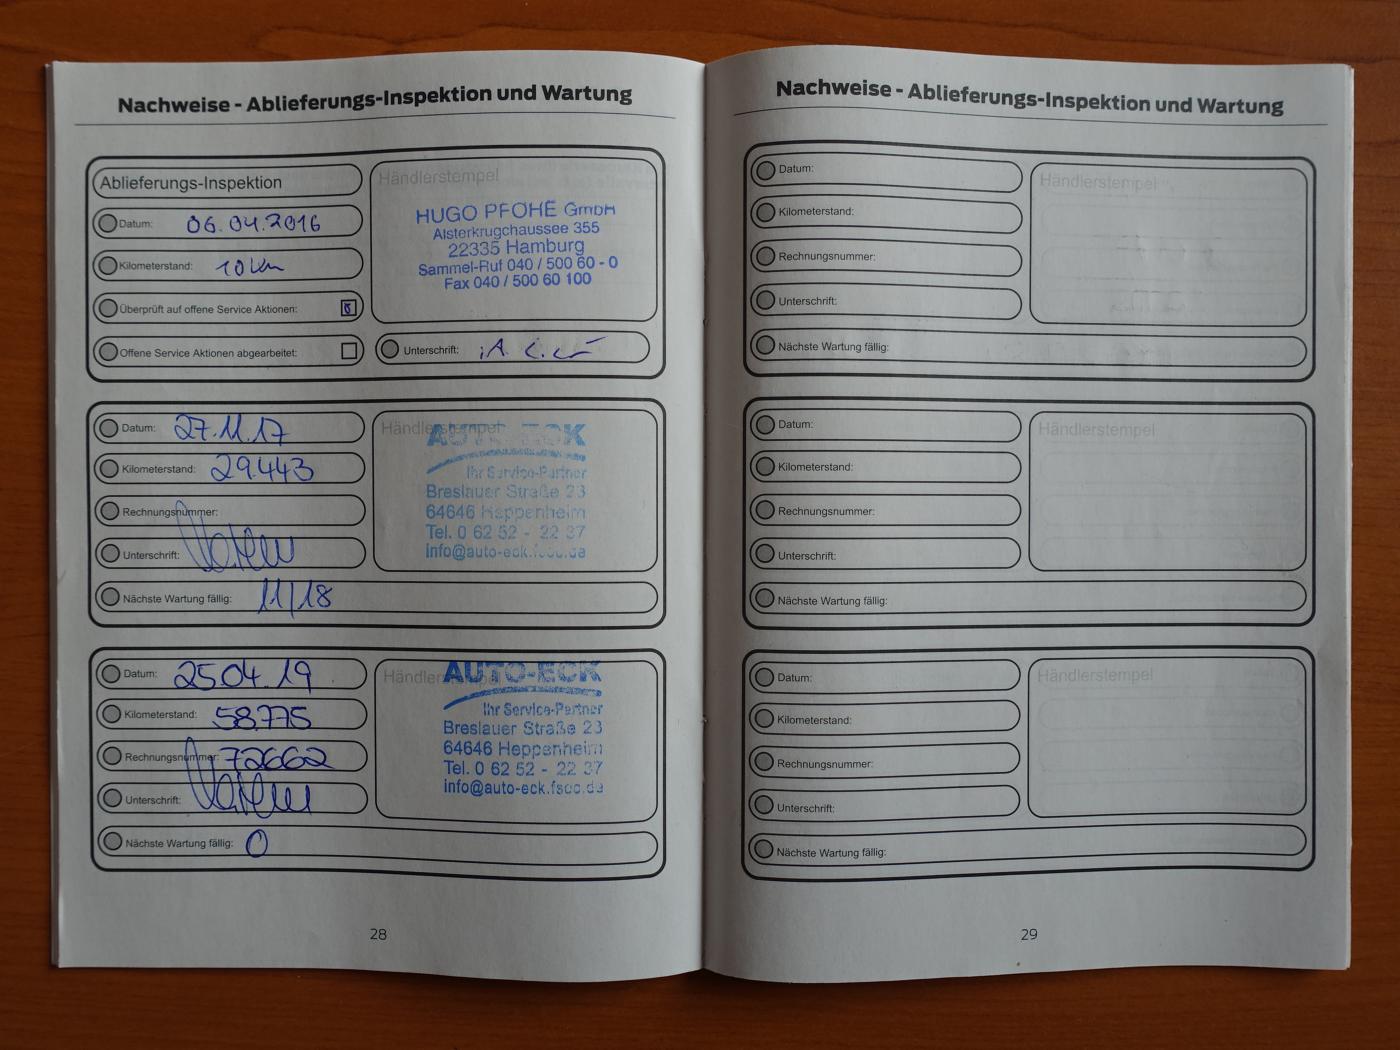 Nachweise - Ablieferungs-Inspektion und Wartung
Ablieferungs-Inspektion
Datum: 06.04.2016
Kilometerstand: 10 km
Überprüft auf offene Service Aktionen:
Offene Service Aktionen abgearbeitet:
Händlerstempel
HUGO PFOHE GmbH
Alsterkrugchaussee 355
22335 Hamburg
Sammel-Ruf 040 / 500 60 - 0
Fax 040 / 500 60 100
Unterschrift: i.A.
Datum: 27.11.17
Kilometerstand: 29.443
Rechnungsnummer:
Unterschrift:
Nächste Wartung fällig: 11/18
Händlerstempel
AUTO-ECK
Ihr Service-Partner
Breslauer Straße 23
64646 Heppenheim
Tel. 0 62 52 - 22 37
Datum: 25.04.19
Kilometerstand: 58.775
Rechnungsnummer: 72662
Unterschrift:
Nächste Wartung fällig: 0
Händlerstempel
AUTO-ECK
Ihr Service-Partner
Breslauer Straße 23
64646 Heppenheim
Tel. 0 62 52 - 22 37
28
Nachweise - Ablieferungs-Inspektion und Wartung
Datum:
Kilometerstand:
Rechnungsnummer:
Unterschrift:
Nächste Wartung fällig:
Händlerstempel
Datum:
Kilometerstand:
Rechnungsnummer:
Unterschrift:
Nächste Wartung fällig:
Händlerstempel
Datum:
Kilometerstand:
Rechnungsnummer:
Unterschrift:
Nächste Wartung fällig:
Händlerstempel
29